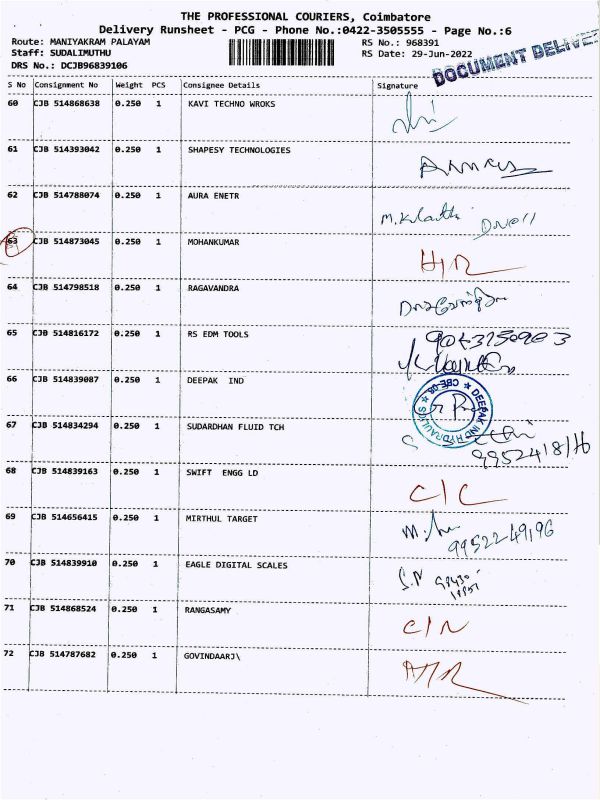 THE PROFESSIONAL COURIERS, Coimbatore
Delivery Runsheet - PCG - Phone No.:0422-3505555 - Page No.:6
Route: MANIYAKRAM PALAYAM
RS No.: 968391
Staff: SUDALIMUTHU
RS Date: 29-Jun-2022
DRS No.: DCJB96839106
DOCUMENT DELIVE
S No Consignment No Weight PCS Consignee Details Signature
60 CJB 514868638 0.250 1 KAVI TECHNO WROKS
61 CJB 514393042 0.250 1 SHAPESY TECHNOLOGIES
62 CJB 514788074 0.250 1 AURA ENETR
63 CJB 514873045 0.250 1 MOHANKUMAR
64 CJB 514798518 0.250 1 RAGAVANDRA
65 CJB 514816172 0.250 1 RS EDM TOOLS
66 CJB 514839087 0.250 1 DEEPAK IND
DEEPAK IND HYDRAULICS ★ CBE-08 ★
67 CJB 514834294 0.250 1 SUDARDHAN FLUID TCH
68 CJB 514839163 0.250 1 SWIFT ENGG LD C/C
69 CJB 514656415 0.250 1 MIRTHUL TARGET
9952249196
70 CJB 514839910 0.250 1 EAGLE DIGITAL SCALES
71 CJB 514868524 0.250 1 RANGASAMY C/N
72 CJB 514787682 0.250 1 GOVINDAARJ\